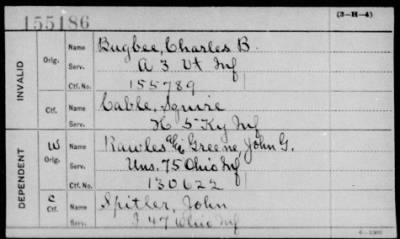 155186
(3-H-4)
INVALID
Orig.
Name Bugbee, Charles B.
Serv. A 3 Vt Inf
Ctf. No. 155789
Ctf.
Name Cable, Squire
Serv. K 5" Ky Inf
DEPENDENT
W
Orig.
Name Rawles Greene, John G.
Serv. Uns. 75 Ohio Inf
Ctf. No. 130622
C
Ctf.
Name Spitler, John
Serv. I 47 Ohio Inf